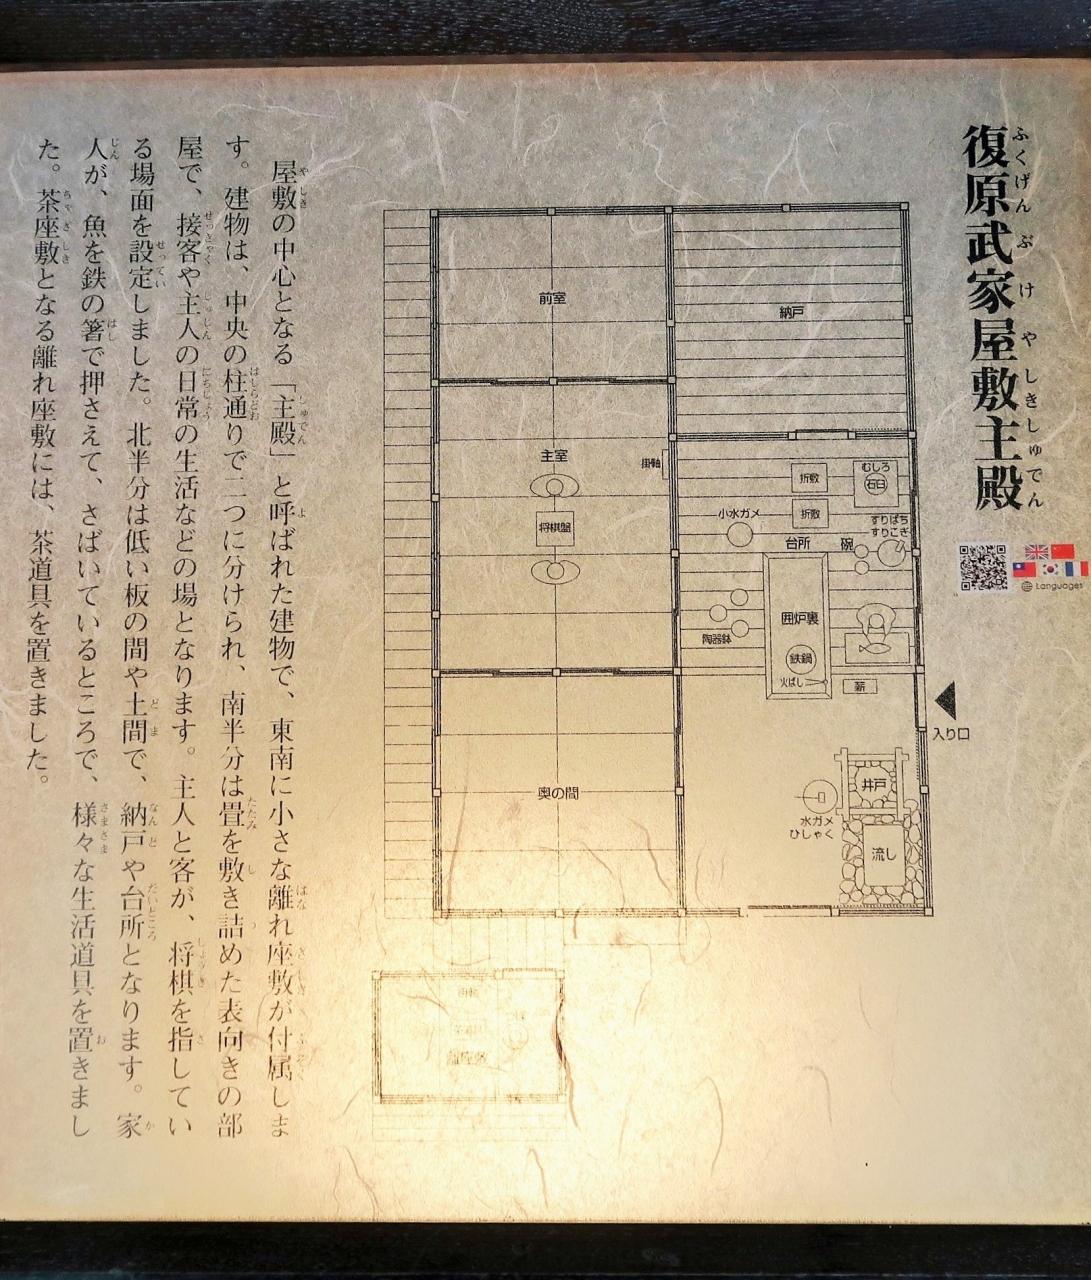 復原武家屋敷主殿
ふくげんぶけやしきしゅでん
Languages
前室
納戸
主室
掛軸
将棋盤
折敷
折敷
むしろ
石臼
小水ガメ
すりばち
すりこぎ
台所
碗
囲炉裏
陶器鉢
鉄鍋
火ばし
薪
入り口
奥の間
井戸
水ガメ
ひしゃく
流し
屋敷の中心となる「主殿」と呼ばれた建物で、東南に小さな離れ座敷が付属しま
す。建物は、中央の柱通りで二つに分けられ、南半分は畳を敷き詰めた表向きの部
屋で、接客や主人の日常の生活などの場となります。主人と客が、将棋を指してい
る場面を設定しました。北半分は低い板の間や土間で、納戸や台所となります。家
人が、魚を鉄の箸で押さえて、さばいているところで、様々な生活道具を置きまし
た。茶座敷となる離れ座敷には、茶道具を置きました。